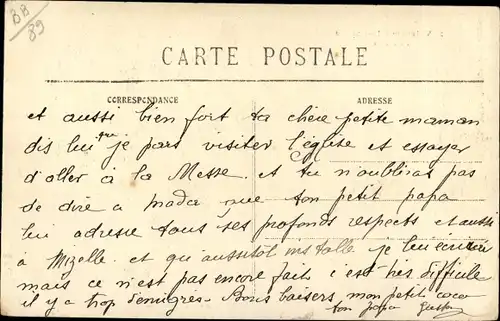 BB
89
CARTE POSTALE
CORRESPONDANCE
ADRESSE
et aussi bien fort ta chère petite maman
dis lui que je pars visiter l'église et essayer
d'aller à la Messe. et tu n'oublieras pas
de dire a que ton petit papa
lui adresse tous ses profonds respects et aussi
à Mizelle. et qu'aussitôt installé je lui écrirai
mais ce n'est pas encore fait c'est très difficile
il y a trop d'émigrés - Bons baisers mon petit coco
ton papa